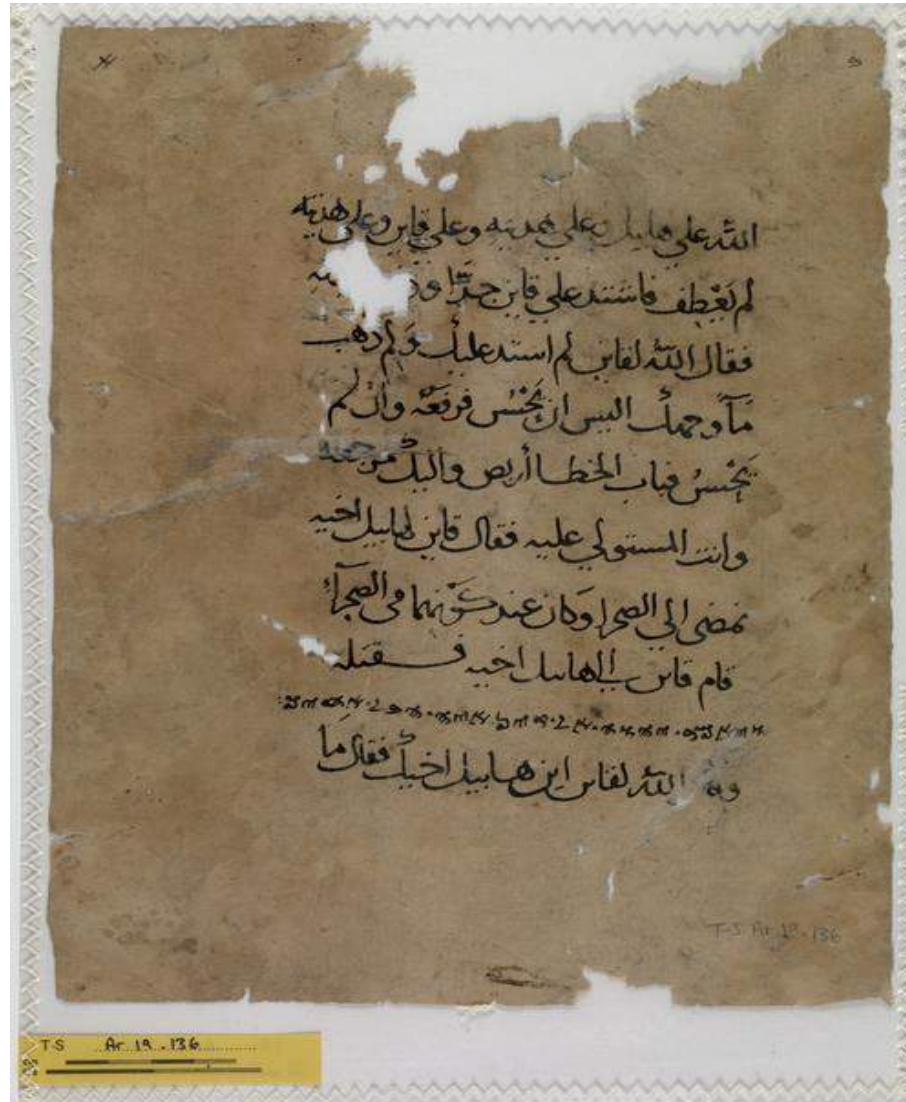 الله علي هابيل وعلي هديته وعلي قاين وعلي هديته
لم يَعْطِف فاشتد علي قاين جدّا
فقال اللّه لقاين لم اشتد عليك وَلِم ذهب
مآ وجهك اليس ان تُحْسُن فرفعَه وان لم
تُحْسن فباب الخطا أربص واليك مرجعه
وانت المستولي عليه فقال قاين لهابيل اخيه
نمضي الي الصحرا وَكان عند كَوْنهما في الصحرآء
قام قاين الي هابيل اخيه فقتله
ࠅࠉࠀࠌࠓ · ࠉࠄࠅࠄ · ࠀࠋ · ࠒࠉࠍ · ࠀࠉ · ࠄࠁࠋ · ࠀࠇࠉࠊ:
اللّه لقاين اين هابيل اخيك فقال مَا
T-S Ar 19.136
T-S Ar 19.136